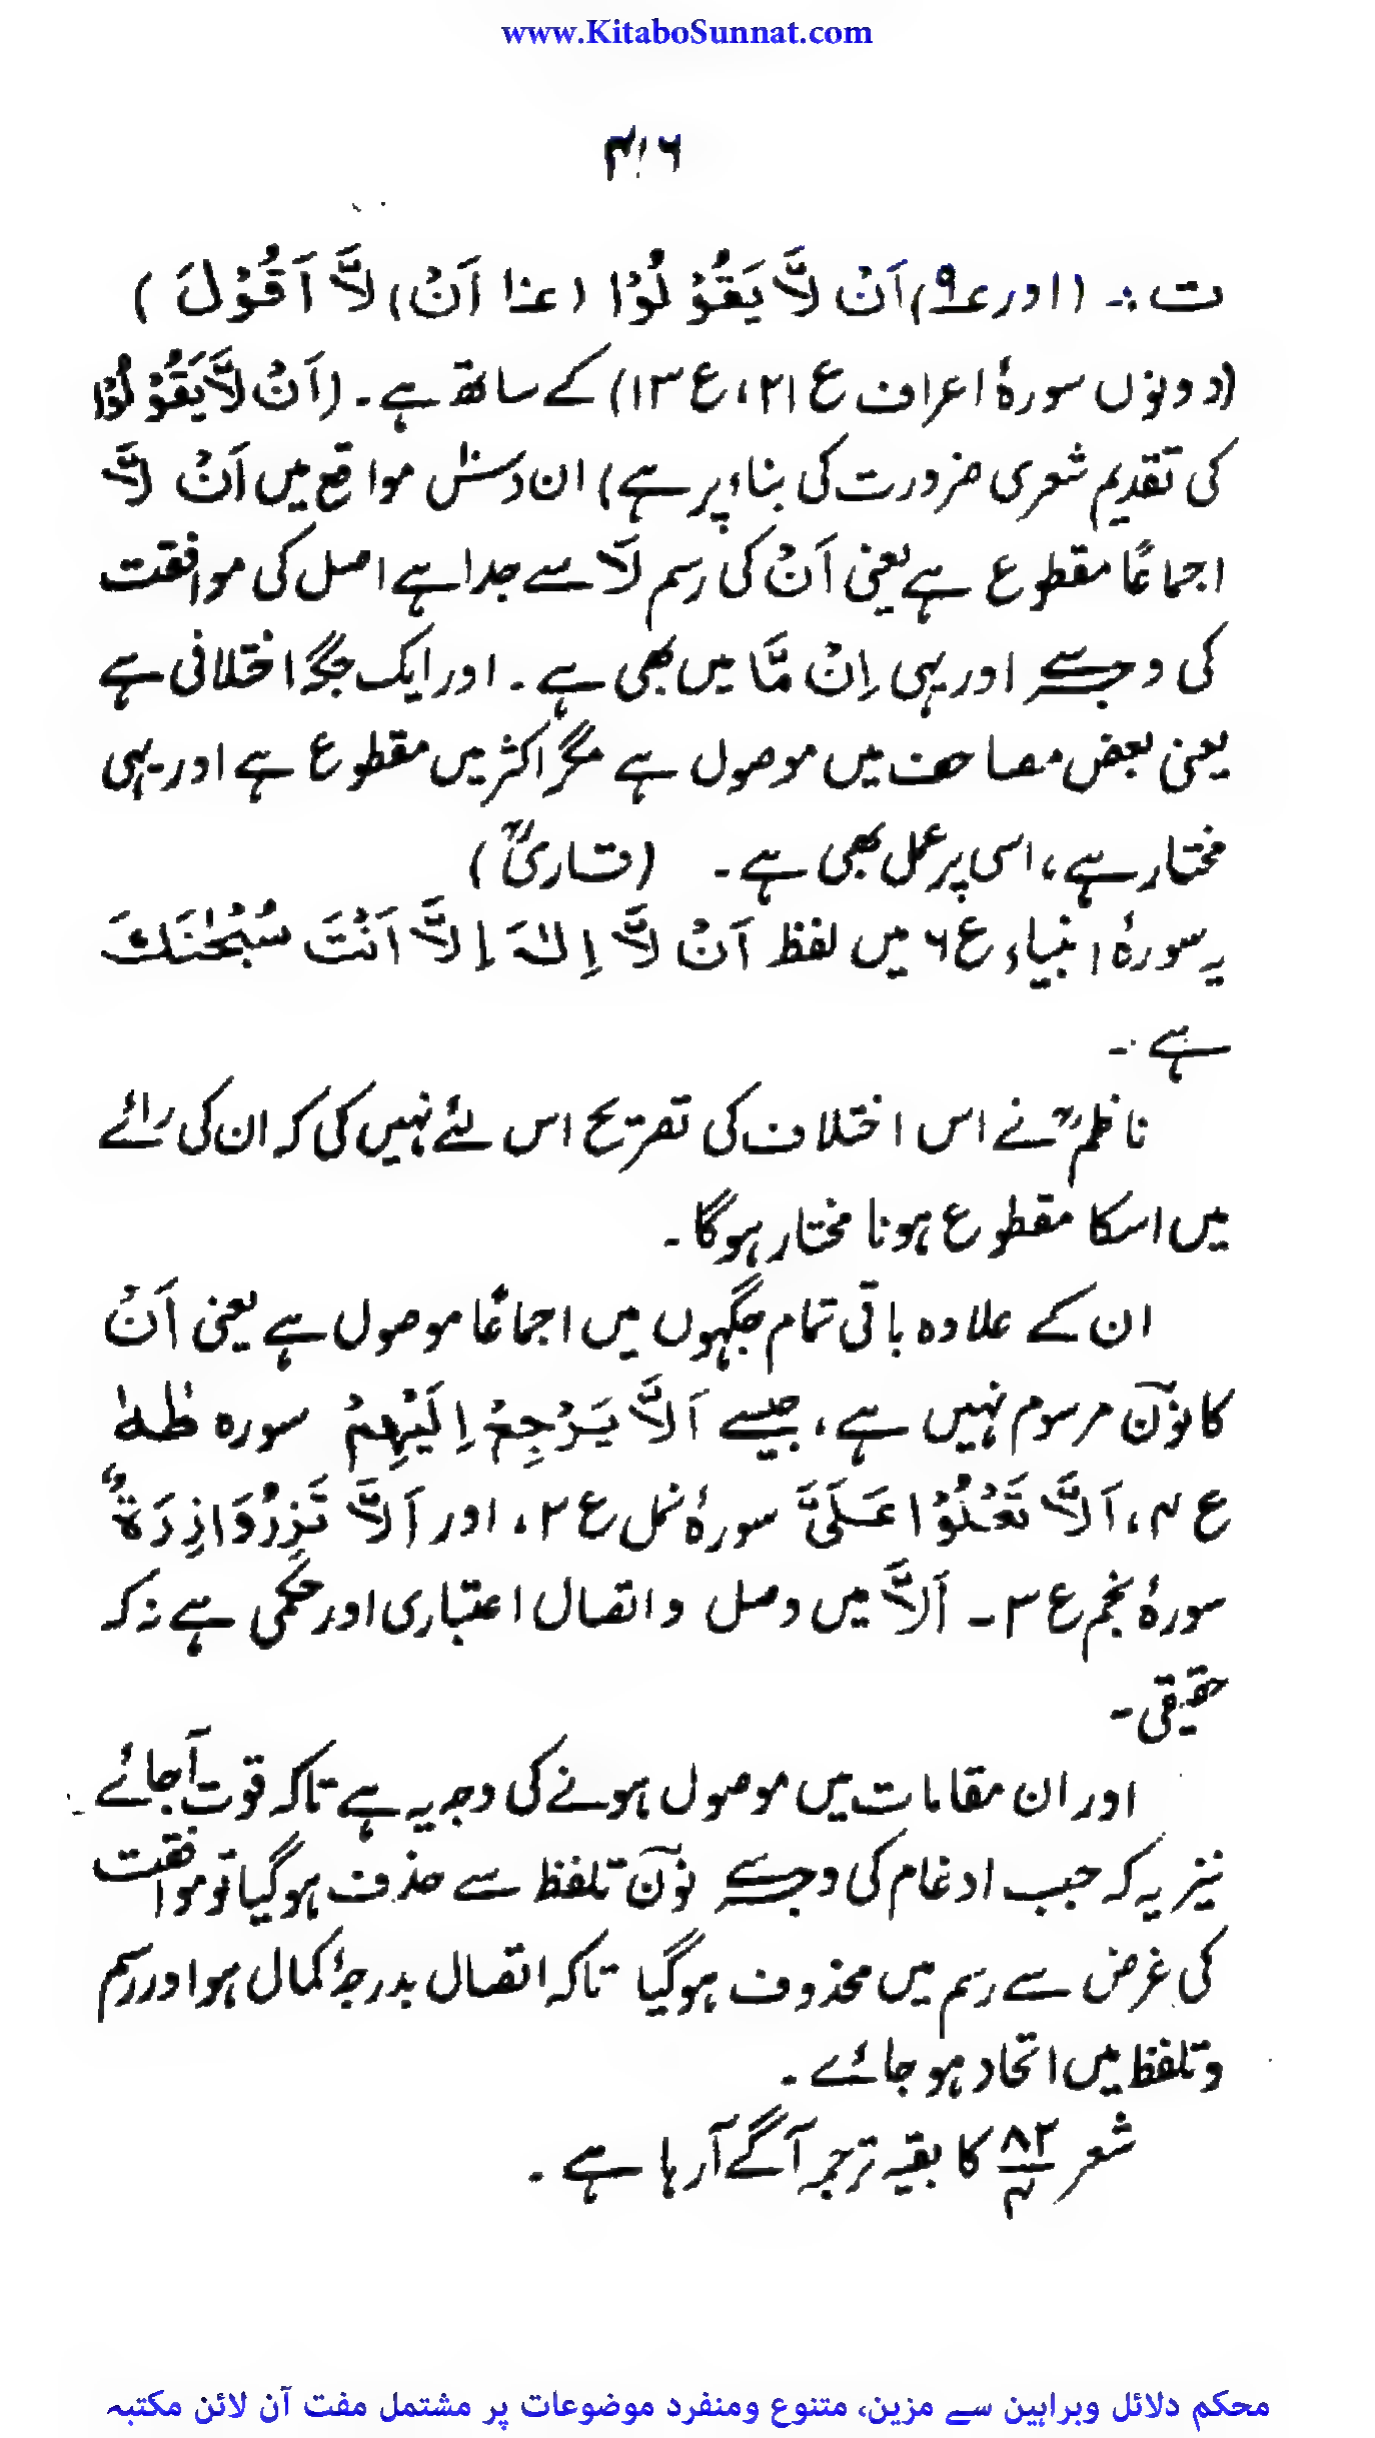 www.KitaboSunnat.com
۴۱۶
ت :۔ (اور ع۹) اَنْ لَّا یَقُوْلُوْا (ع۱۰ اَنْ) لَّا اَقُوْلَ )
(دونوں سورۂ اعراف ع ۲۱، ع ۱۳) کے ساتھ ہے۔ (اَنْ لَّا یَقُوْلُوْا
کی تقدیم شعری ضرورت کی بناء پر ہے) ان دسٰس مواقع میں اَنْ لَّا
اجماعًا مقطوع ہے یعنی اَنْ کی رسم لَا سے جدا ہے اصل کی موافقت
کی وجہ سے اور یہی اِنْ مَّا میں بھی ہے۔ اور ایک جگہ اختلافی ہے
یعنی بعض مصاحف میں موصول ہے مگر اکثر میں مقطوع ہے اور یہی
مختار ہے، اسی پر عمل بھی ہے۔ (قاریؒ)
یہ سورۂ انبیاء ع ۶ میں لفظ اَنْ لَّا اِلٰہَ اِلَّا اَنْتَ سُبْحٰنَکَ
ہے :۔
ناظمؒ نے اس اختلاف کی تصریح اس لئے نہیں کی کہ ان کی رائے
میں اسکا مقطوع ہونا مختار ہوگا۔
ان کے علاوہ باقی تمام جگہوں میں اجماعًا موصول ہے یعنی اَنْ
کا نوٓن مرسوم نہیں ہے، جیسے اَلَّا یَرْجِعُ اِلَیْہِمْ سورہ طٰہٰ
ع ۴، اَلَّا تَعْلُوْا عَلَیَّ سورۂ نمل ع ۲، اور اَلَّا تَزِرُ وَازِرَۃٌ
سورۂ نجم ع ۳۔ اَلَّا میں وصل و اتصال اعتباری اور حکمی ہے نہ کہ
حقیقی۔
اور ان مقامات میں موصول ہونے کی وجہ یہ ہے تاکہ قوت آجائے۔
نیز یہ کہ جب ادغام کی وجہ سے نوٓن تلفظ سے حذف ہوگیا تو موافقت
کی غرض سے رسم میں محذوف ہوگیا تاکہ اتصال بدرجۂ کمال ہو اور رسم
و تلفظ میں اتحاد ہو جائے۔
شعر ۸۲/۴ کا بقیہ ترجمہ آگے آرہا ہے۔
محکم دلائل وبراہین سے مزین، متنوع ومنفرد موضوعات پر مشتمل مفت آن لائن مکتبہ